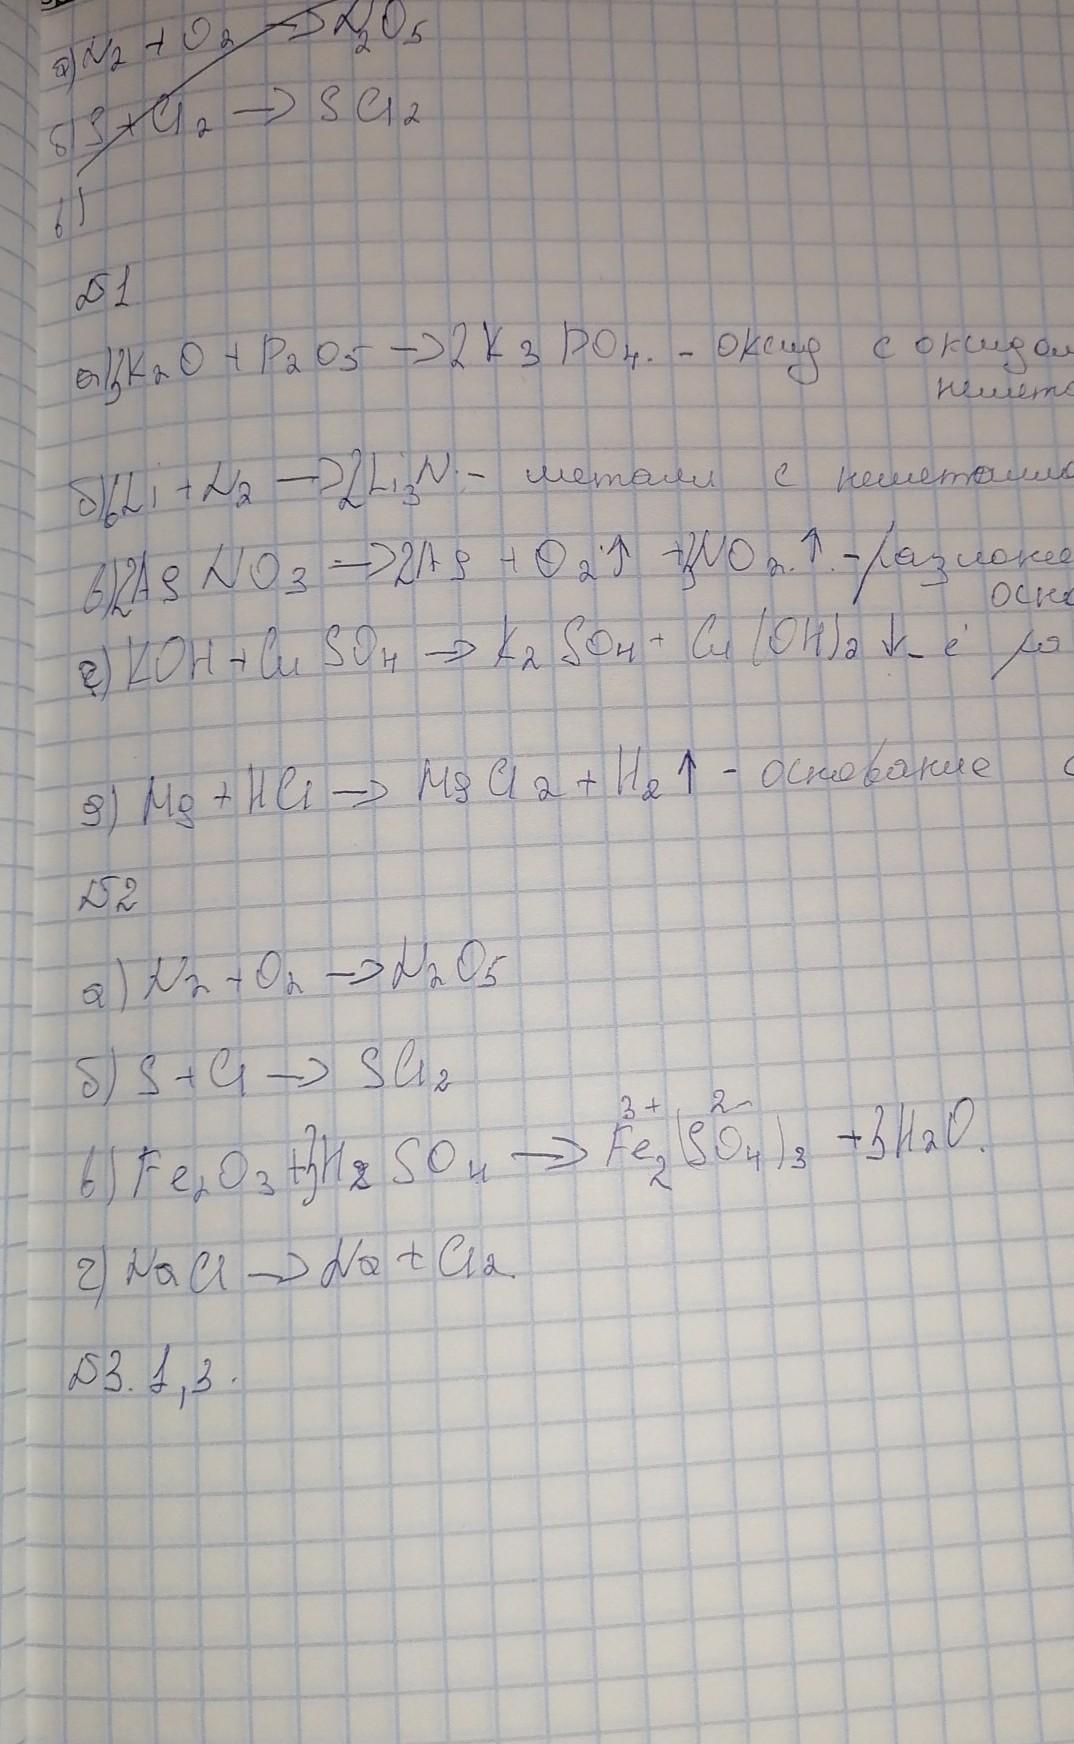 а) N₂ + O₂ → N₂O₅
б) S + Cl₂ → SCl₂
в)
№1
а) 3K₂O + P₂O₅ → 2K₃PO₄. - оксид с оксидом
немета
б) 6Li + N₂ → 2Li₃N - металл с неметалло
в) 2AgNO₃ → 2Ag + O₂↑ + 2NO₂↑. - разложе
осно
г) KOH + CuSO₄ → K₂SO₄ + Cu(OH)₂↓ - ё ра
д) Mg + HCl → MgCl₂ + H₂↑ - основание с
№2
а) N₂ + O₂ → N₂O₅
б) S + Cl → SCl₂
3+ 2-
в) Fe₂O₃ + 3H₂SO₄ → Fe₂(SO₄)₃ + 3H₂O.
г) NaCl → Na + Cl₂.
№3. 1,3.